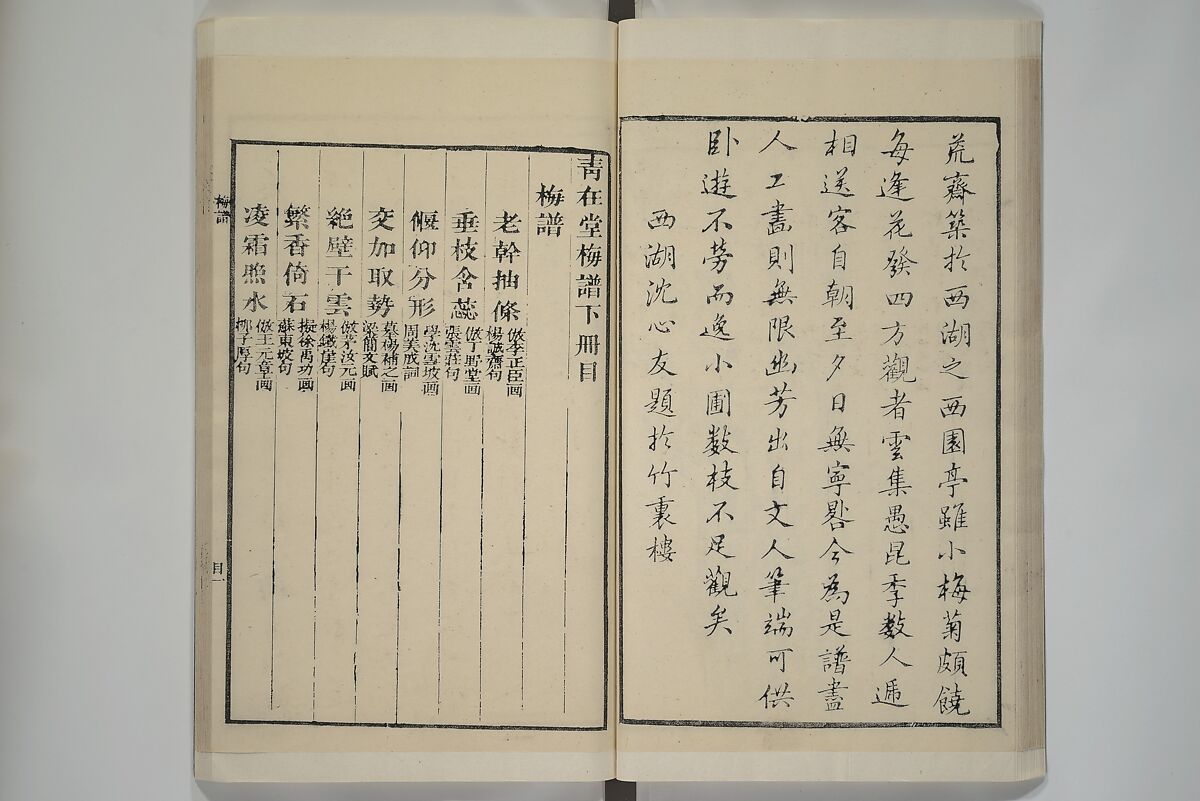 荒齋築於西湖之西園亭雖小梅菊頗饒
每逢花發四方觀者雲集愚昆季數人遞
相送客自朝至夕日無寧晷今為是譜盡
人工畵則無限幽芳出自文人筆端可供
卧遊不勞而逸小圃数枝不足觀矣
西湖沈心友題於竹裏樓
青在堂梅譜下冊目
梅譜
老幹抽條 倣李正臣画
楊誠齋句
垂枝含蕊 倣丁野堂画
張雲莊句
偃仰分形 學沈雪坡画
周美成詞
交加取勢 墓楊補之画
梁簡文賦
絕壁干雲 倣茅汝元画
楊鐵崖句
繁香倚石 擬徐禹功画
蘇東坡句
凌霜照水 倣王元章画
柳子厚句
梅譜
目一